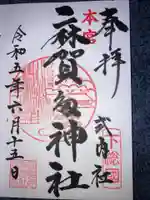 奉拝
式内社
本宮
麻賀多神社
令和五年六月十五日